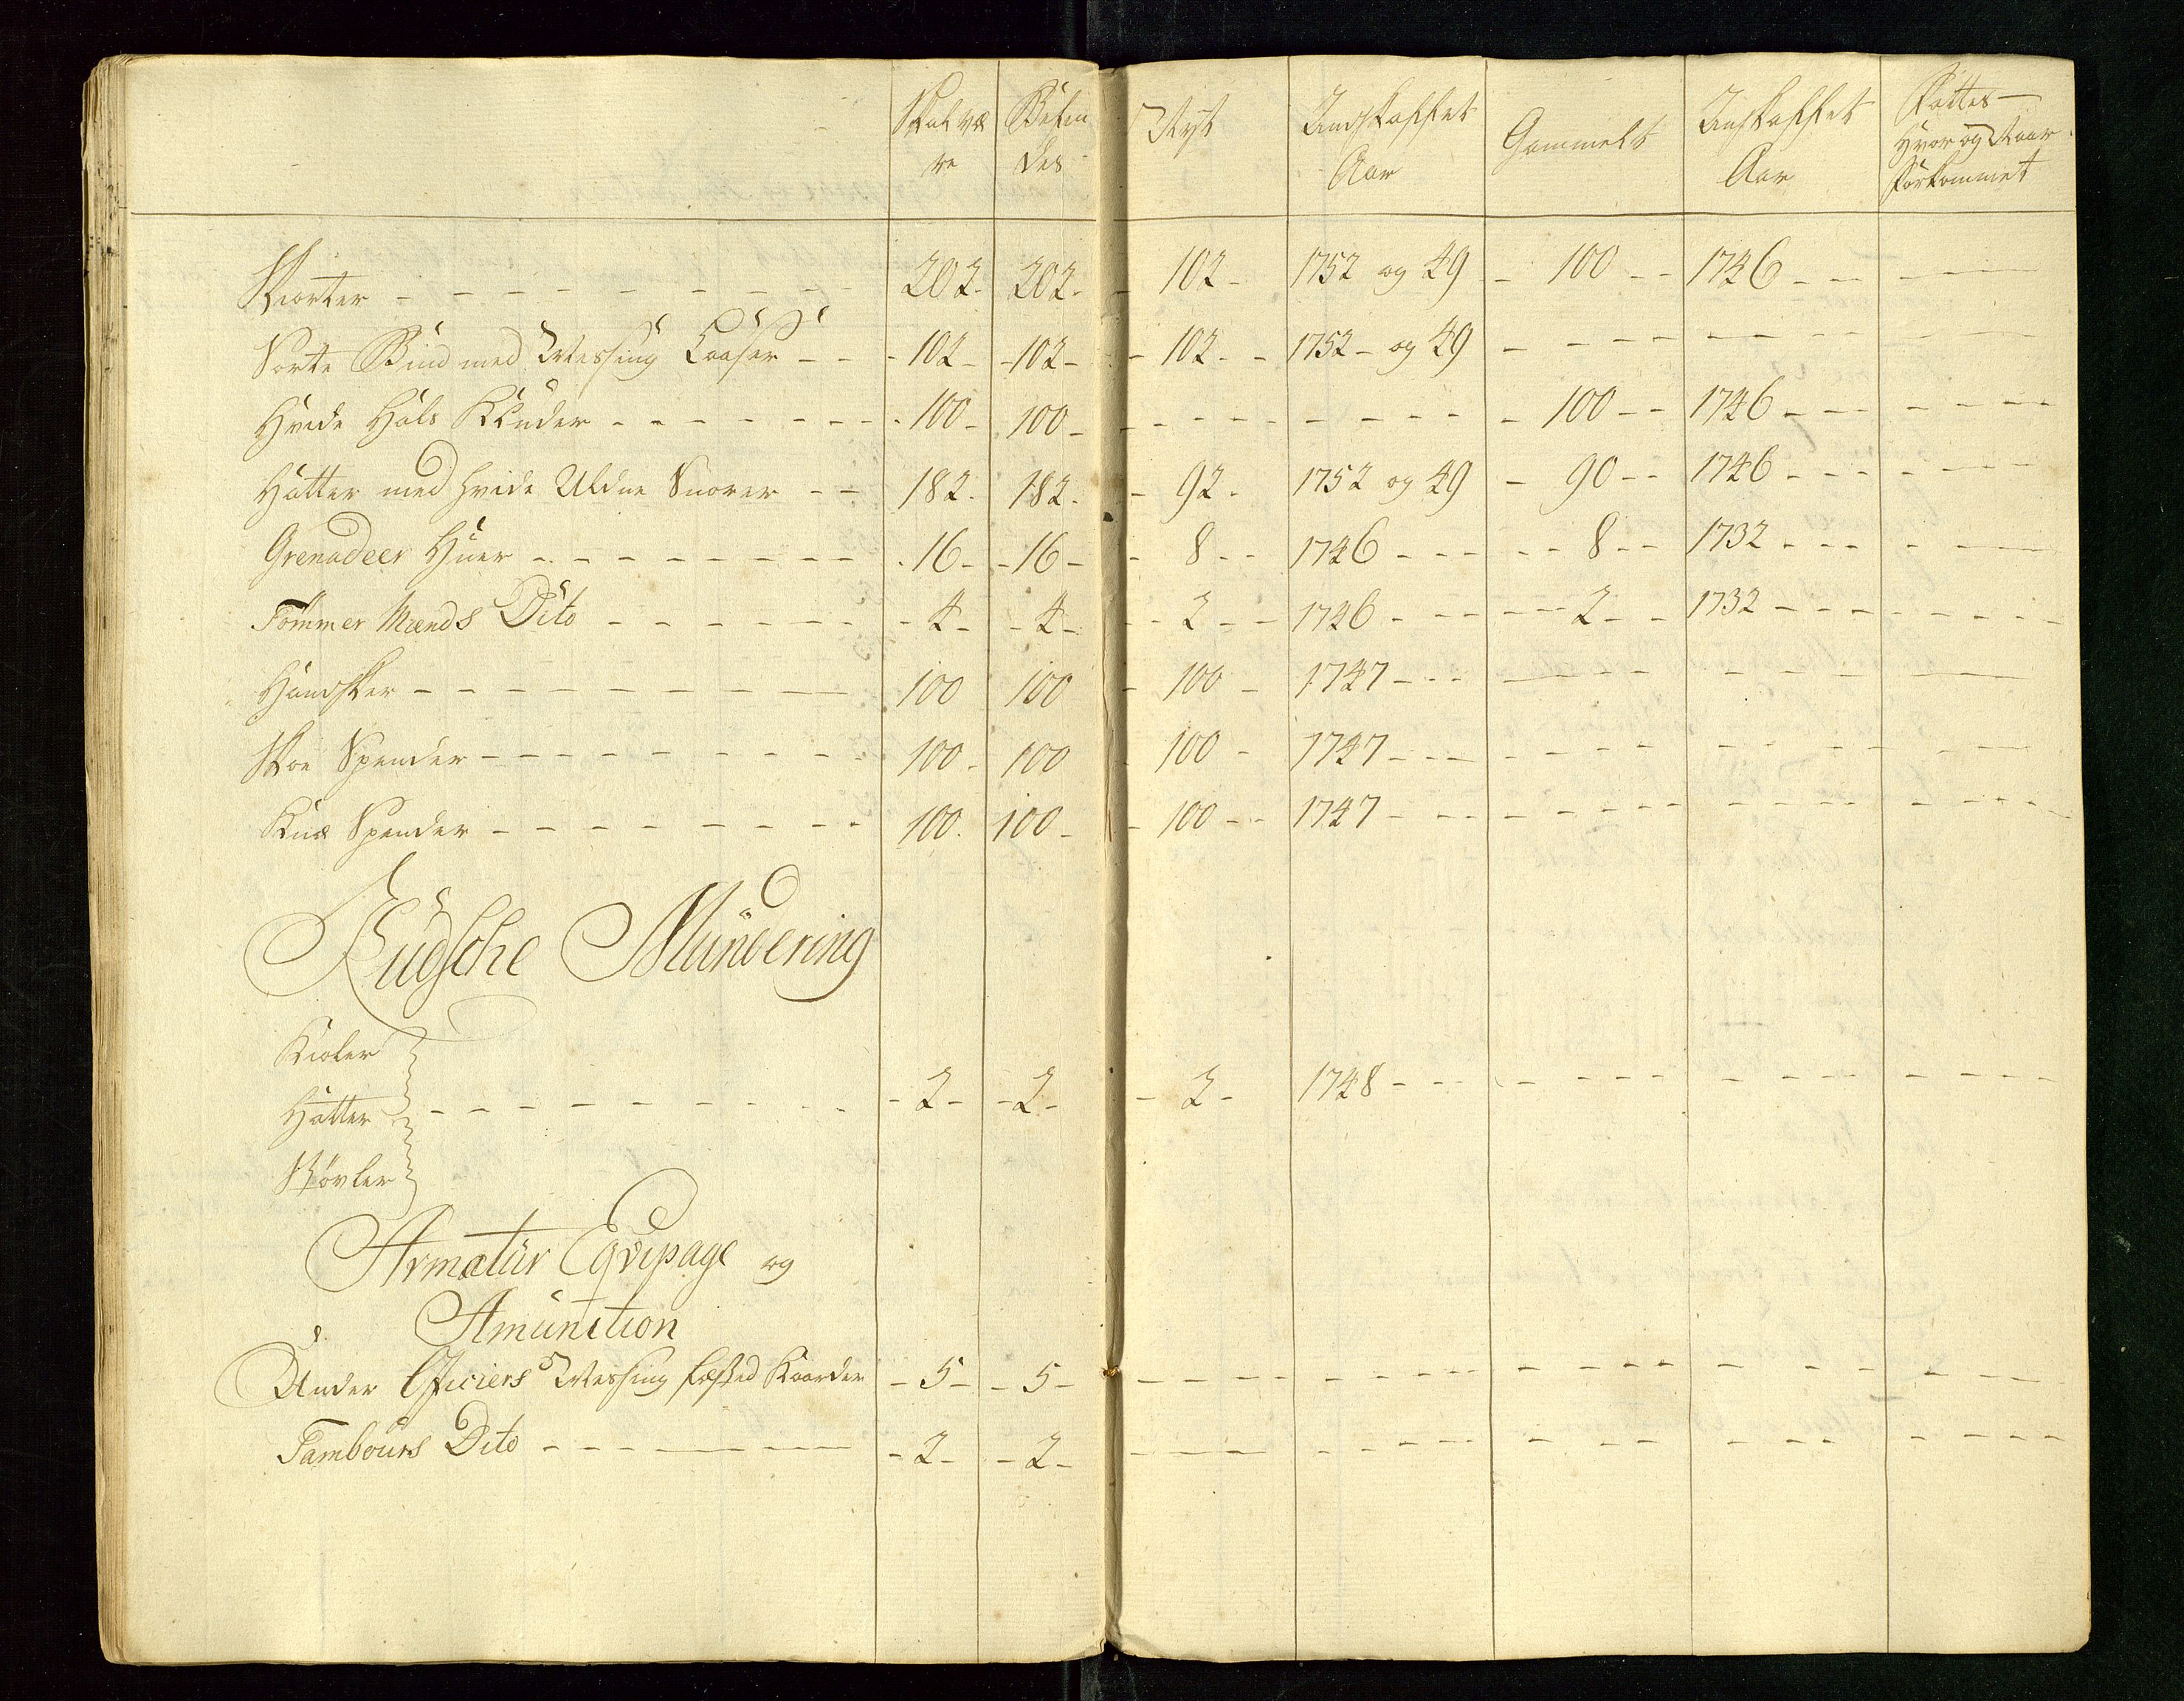 Skal væ re | Befin des | Nyt | Andskaffet Aar | Gammelt | Anskaffet Aar | Fattes Hvor og Naar forkommet
Skiorter - - - 202. | 202. | 102 - | 1752 og 49 | - 100 - - | 1746 - - -
Sorte Bind med Messing Laaser - - - 102 - | - 102 - | - 102 - - | 1752 - og 49 | - - - -
Hvide Hals Klüder - - - 100 - | 100 - | - - - | - - - | - 100 - - | 1746 - - -
Hatter med hvide Uldne Snorer - - 182. | 182. | - 92 - | 1752 og 49 | - 90 - - | 1746 - - -
Grenadeer Huer - - - 16 - | - 16 - | - 8 - - | 1746 - - - | - - 8 - - | 1732 - - -
Tömmer Mænds Dito - - - 4 - | - 4 - | - - 2 - - | 1746 - - - | - - 2 - - | 1732 - - -
Handsker - - - 100 | 100 | - 100 - | 1747 - - -
Skoe Spender - - - 100 - | 100 | 100 - | 1747 - - -
Knæ Spender - - - 100. | 100 - | - 100 - - | 1747 - - -
Kudsche Mündering
Kioler
Hatter - - - 2 - | - 2 - | - 2 - | 1748 - - -
Stövler
Armatür Eqvipage og
Amunition
Under Officiers Messing fæsted Kaarder - 5 - | - 5 -
Tambours Dito - - - 2 - | - 2 -